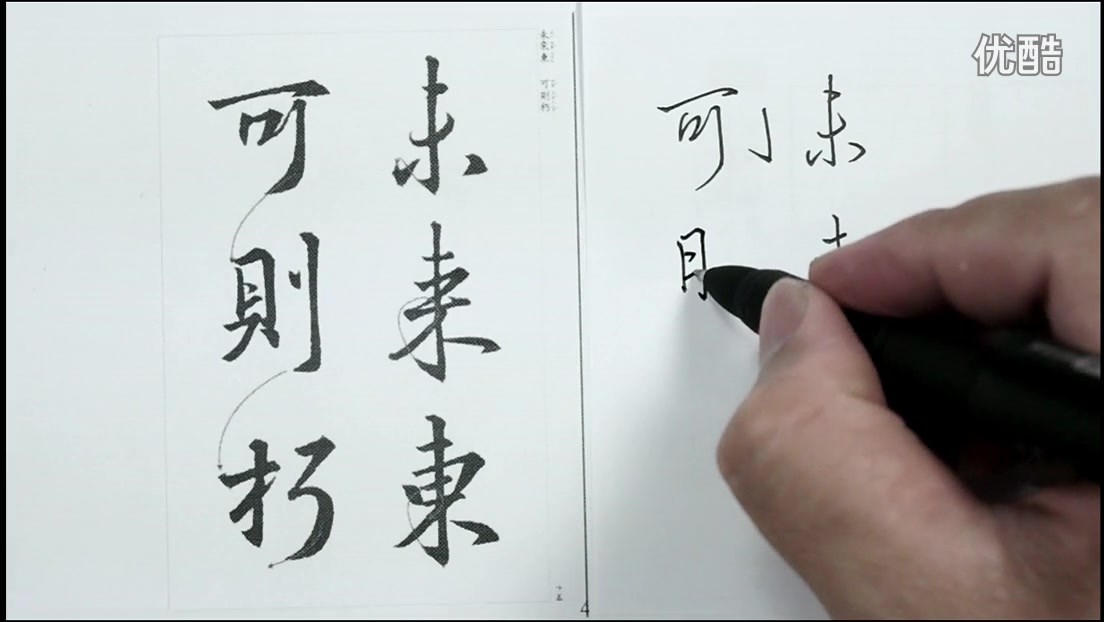 优酷
未来東 可則朽
未
来
東
可
則
朽
未
可